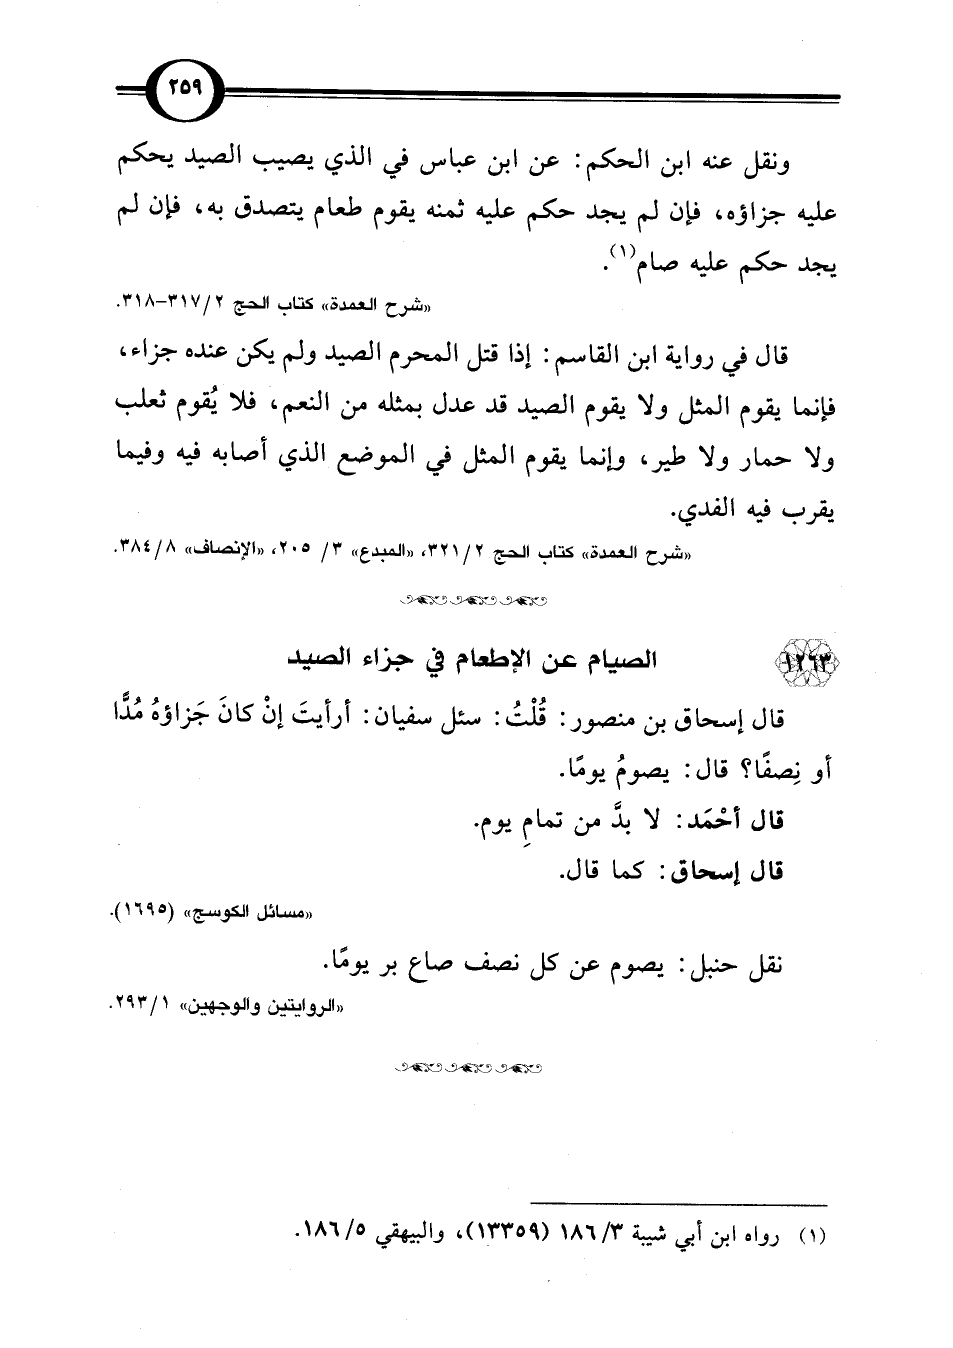 ٢٥٩
ونقل عنه ابن الحكم: عن ابن عباس في الذي يصيب الصيد يحكم
عليه جزاؤه، فإن لم يجد حكم عليه ثمنه يقوم طعام يتصدق به، فإن لم
يجد حكم عليه صام(١).
«شرح العمدة» كتاب الحج ٢/ ٣١٧-٣١٨.
قال في رواية ابن القاسم: إذا قتل المحرم الصيد ولم يكن عنده جزاء،
فإنما يقوم المثل ولا يقوم الصيد قد عدل بمثله من النعم، فلا يُقوم ثعلب
ولا حمار ولا طير، وإنما يقوم المثل في الموضع الذي أصابه فيه وفيما
يقرب فيه الفدي.
«شرح العمدة» كتاب الحج ٢/ ٣٢١، «المبدع» ٣/ ٢٠٥، «الإنصاف» ٨/ ٣٨٤.
١٢٦٣ الصيام عن الإطعام في جزاء الصيد
قال إسحاق بن منصور: قُلْتُ: سئل سفيان: أرأيتَ إنْ كانَ جَزاؤهُ مُدًّا
أو نِصفًا؟ قال: يصومُ يومًا.
قال أحْمَد: لا بدَّ من تمامِ يوم.
قال إسحاق: كما قال.
«مسائل الكوسج» (١٦٩٥).
نقل حنبل: يصوم عن كل نصف صاع بر يومًا.
«الروايتين والوجهين» ١/ ٢٩٣.
(١) رواه ابن أبي شيبة ٣/ ١٨٦ (١٣٣٥٩)، والبيهقي ٥/ ١٨٦.